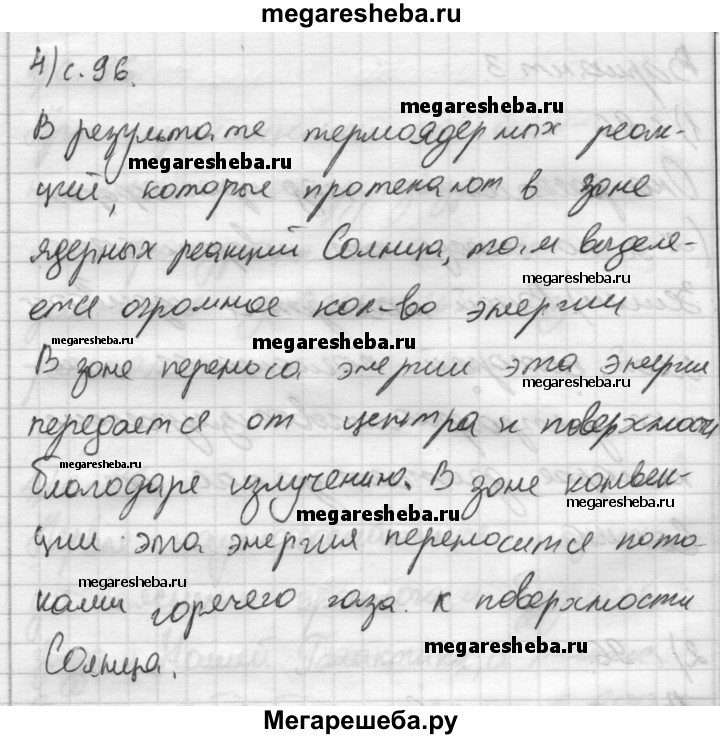 megaresheba.ru
4) с. 96.
megaresheba.ru
В результате термоядерных реак-
megaresheba.ru
ций, которые протекают в зоне
ядерных реакций Солнца, там выделе-
megaresheba.ru
ется огромное кол-во энергии
megaresheba.ru
megaresheba.ru
В зоне переноса энергии эта энергия
megaresheba.ru
передается от центра к поверхности
megaresheba.ru
благодаря излучению. В зоне конвек-
megaresheba.ru
megaresheba.ru
ции эта энергия переносится пото-
megaresheba.ru
ками горячего газа к поверхности
megaresheba.ru
Солнца.
Мегарешеба.ру